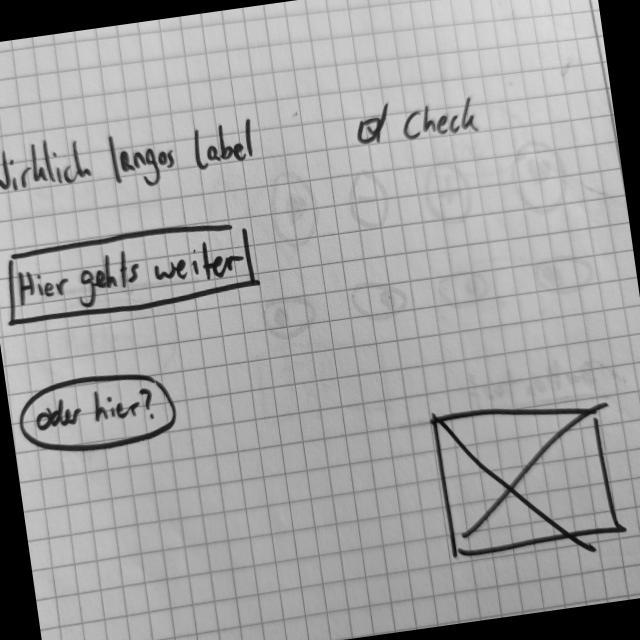 Wirklich langes Label
Check
Hier gehts weiter
oder hier?